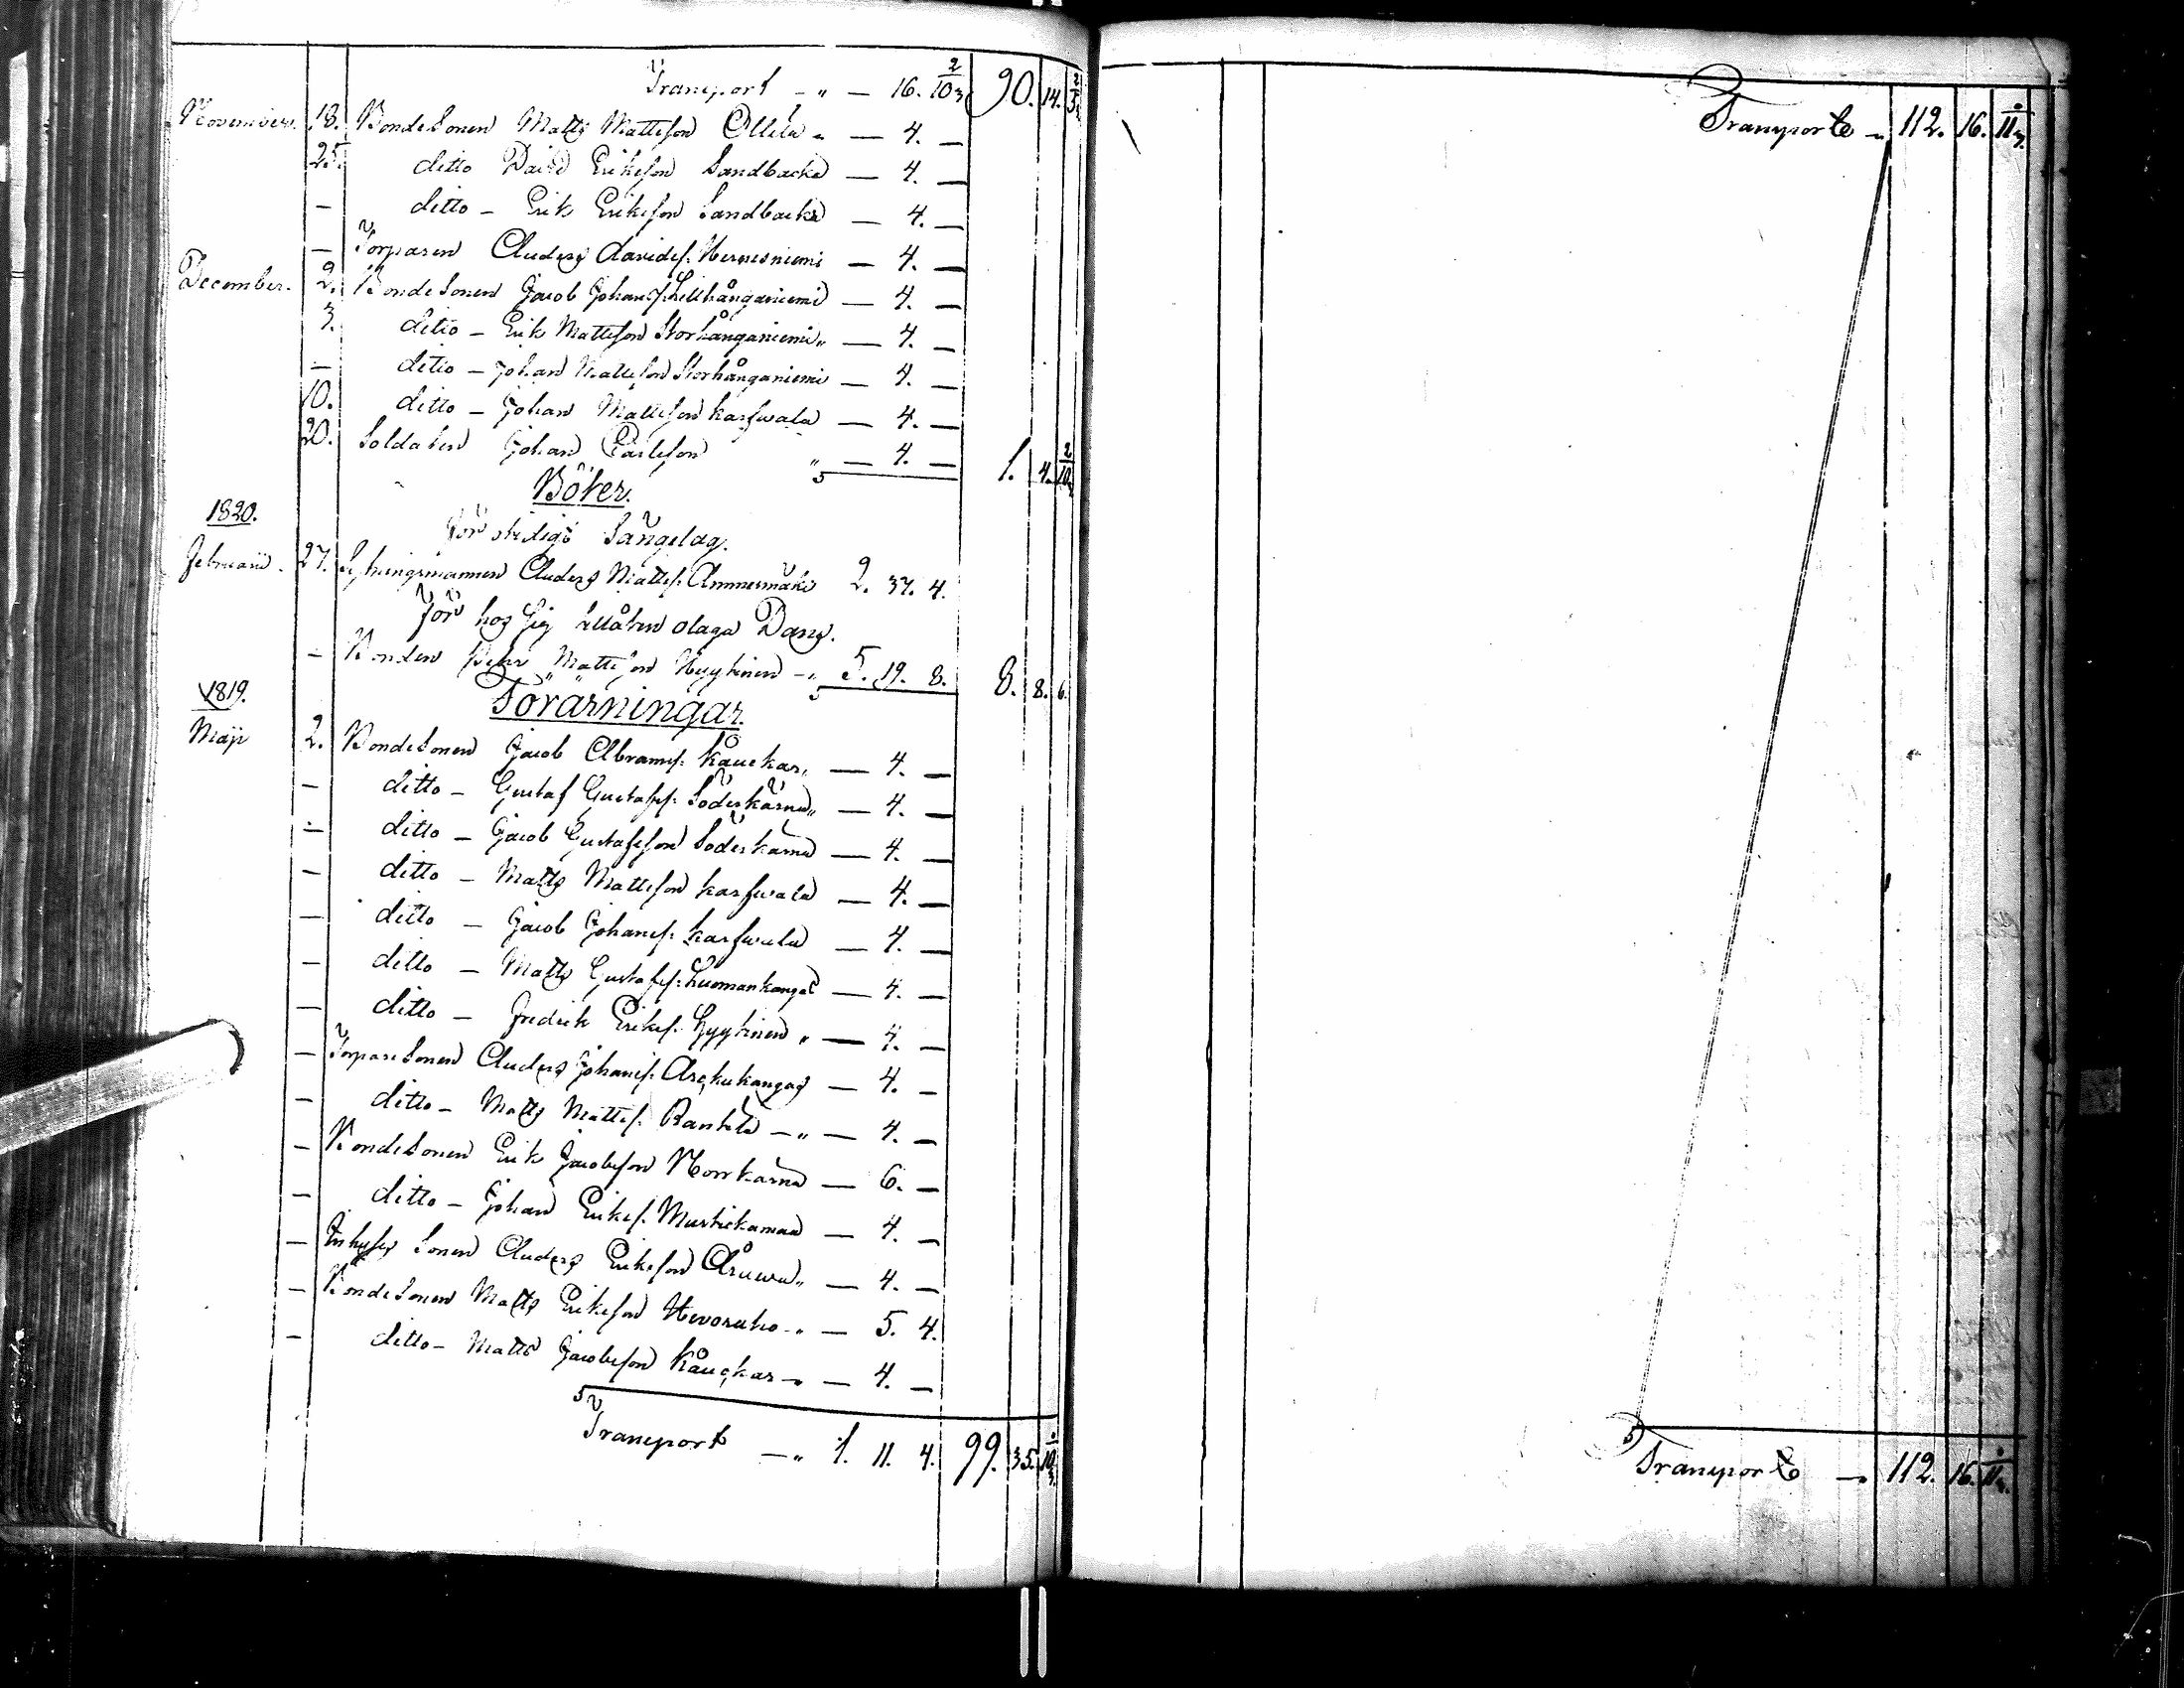 Transport - „ - 16. 10 2/3 90. 14. 5 2/3
November. 18. Bondesonen Matts Mattsson Ollila „ - 4. -
25. ditto David Eriksson Sandbacka - 4. -
- ditto - Erik Eriksson Sandbacka - 4. -
- Torparen Anders Davidss. Hernesniemi - 4. -
December. 2. Bondesonen Jacob Johanss. Lillhånganiemi - 4. -
3. ditto - Erik Mattsson Storhånganiemi „ - 4. -
- ditto - Johan Mattsson Storhånganiemi - 4. -
10. ditto - Johan Mattsson Karfwala - 4. -
20. Soldaten Johan Carlsson „ - 4. - 1. 4. 10 2/3
Böter.
1820.
för otidigt Sängelag.
Februarii. 27. Anders Mattss. Ammesmäki 2. 37. 4.
För hos sig tillåten olaga Dans.
- Bonden Pehr Mattsson Hyytinen - „ 5. 19. 8. 8. 8. 6.
1819. Förärningar.
Maji 2. Bondesonen Jacob Abramss. Kåuckar „ - 4. -
- ditto - Gustaf Gustafss. Söderkärnä „ - 4. -
- ditto - Jacob Gustafsson Söderkärnä - 4. -
- ditto - Matts Mattsson Karfwala - 4. -
- ditto - Jacob Johanss. Karfwala - 4. -
- ditto - Matts Gustafss. Luomankangas - 4. -
- ditto - Fredrik Erikss. Hyytinen „ - 4. -
- Torparesonen Anders Johanss. - 4. -
- ditto - Matts Mattss. Rantala - „ - 4. -
- Bondesonen Erik Jacobsson Norrkärnä - 6. -
- ditto - Johan Erikss. Mustickamaa - 4. -
- Inhyses Sonen Anders Eriksson - 4. -
- Bondesonen Matts Eriksson Hevoruho - „ - 5. 4.
- ditto - Matts Jacobsson Kåuckar - „ - 4. -
Transport - „ 1. 11. 4. 99. 35.
Transport - 112. 16. 11
Transport - 112. 16. 11